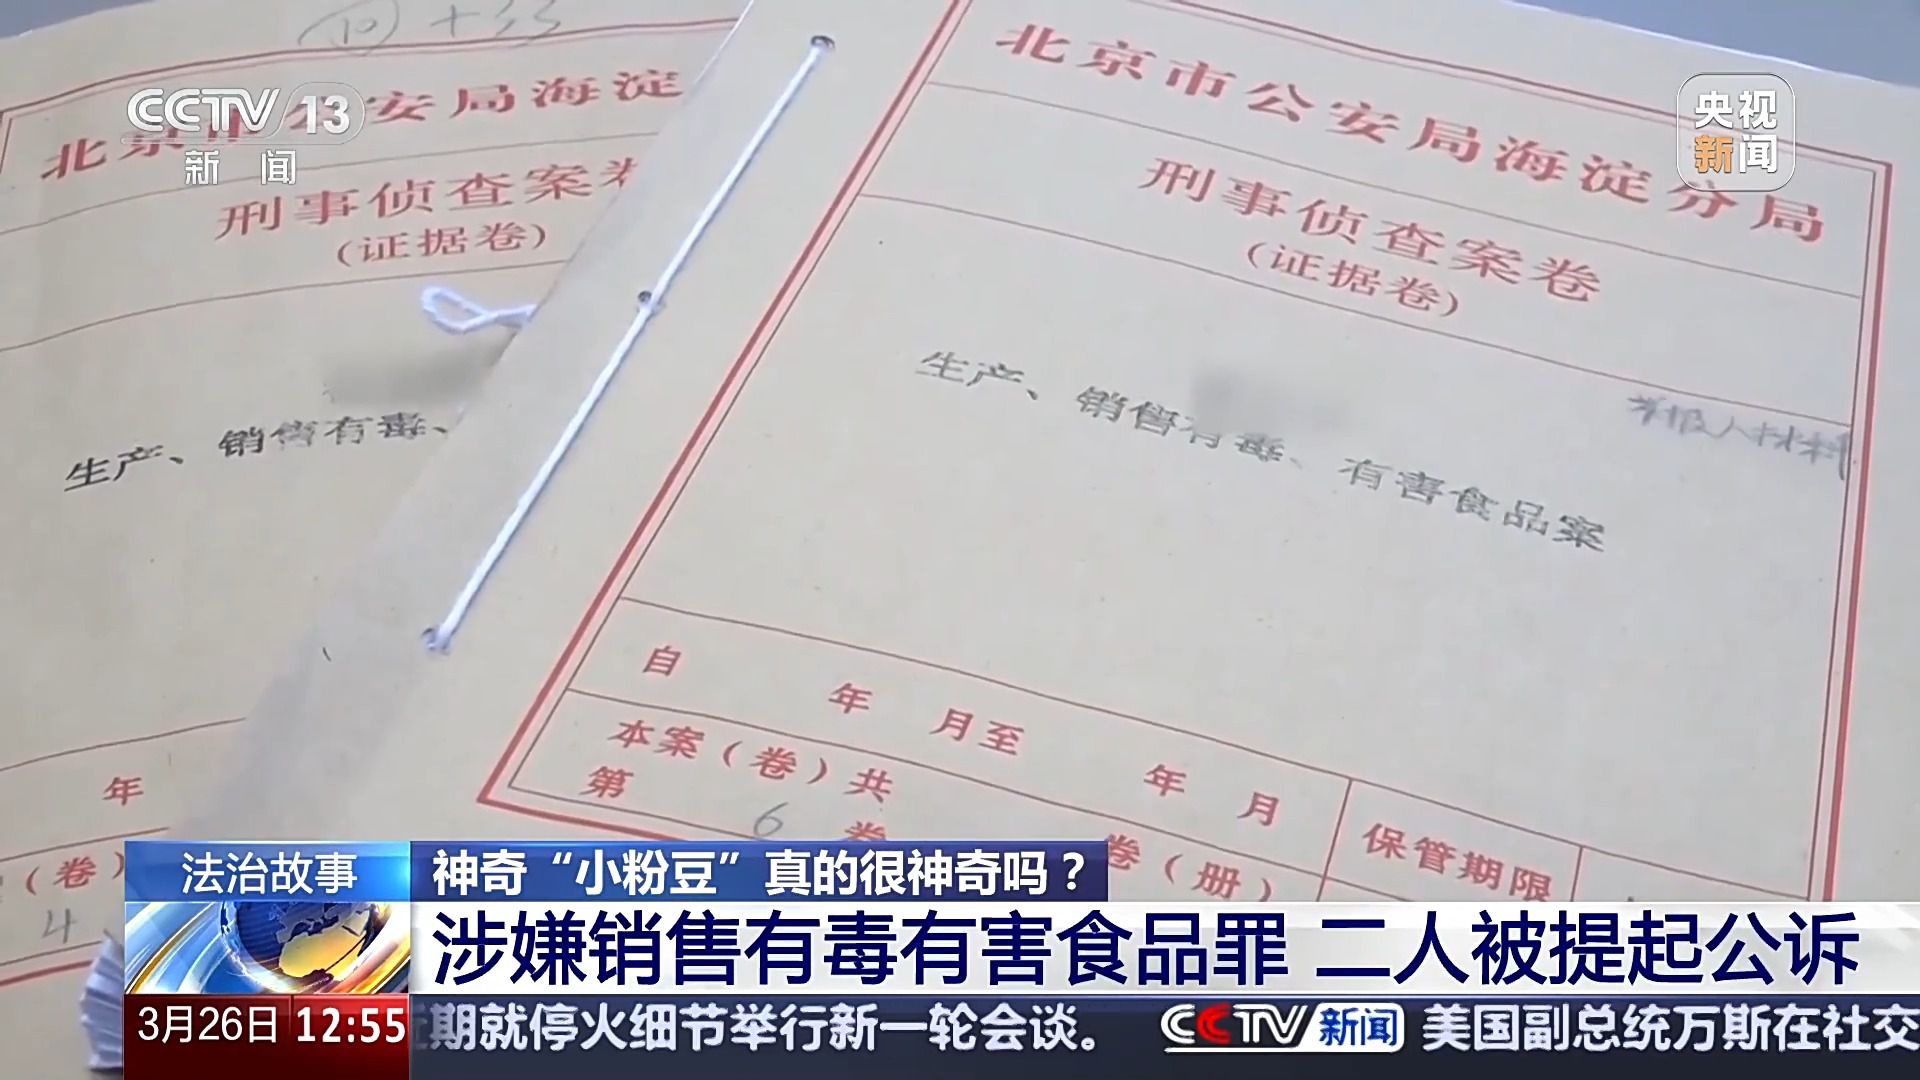 回+23
北京市公安局海淀
刑事侦查案卷
(证据卷)
生产、销售有毒、
年
(卷)
4
北京市公安局海淀分局
刑事侦查案卷
(证据卷)
举报人材料
生产、销售有毒、有害食品案
自 年 月至 年 月
本案(卷)共 卷(册)
第 6 卷
保管期限
CCTV 13
新闻
央视
新闻
法治故事
神奇“小粉豆”真的很神奇吗？
涉嫌销售有毒有害食品罪 二人被提起公诉
3月26日 12:55
期就停火细节举行新一轮会谈。 CCTV 新闻 美国副总统万斯在社交